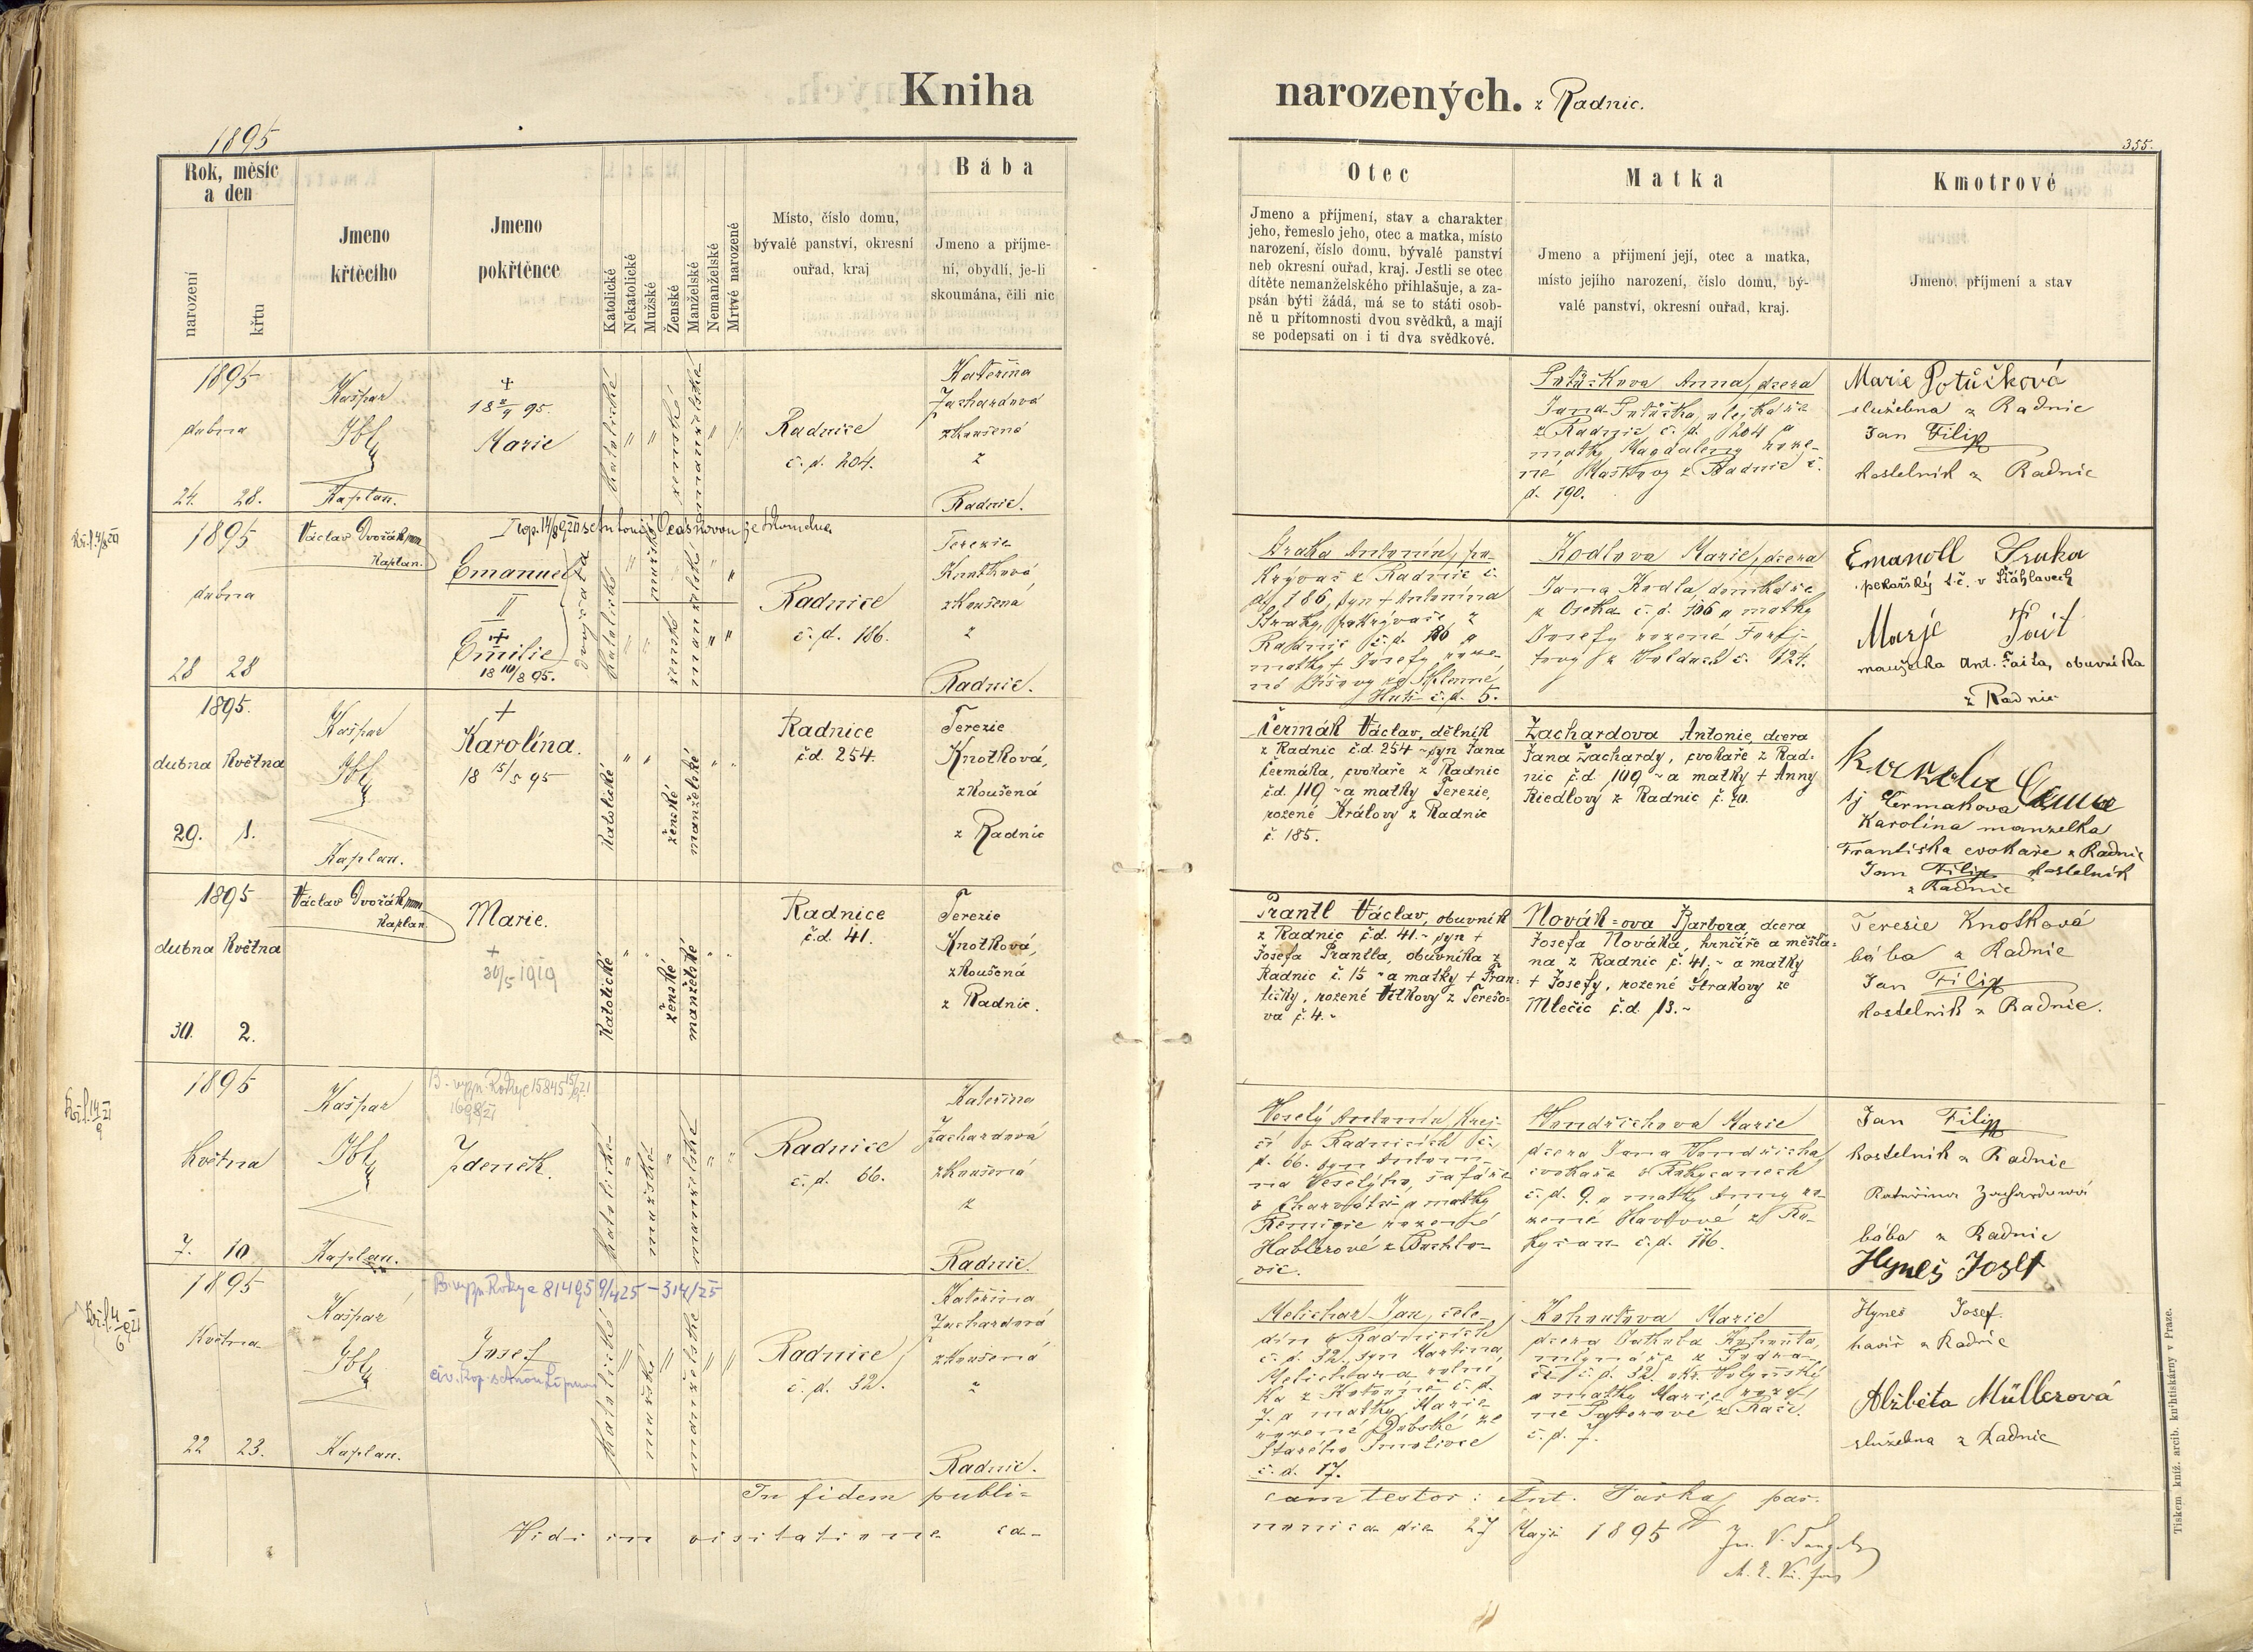 Kniha
narozených. z Radnic.
1895
355.
Rok, měsíc
a den
narození
křtu
Jmeno
křtěcího
Jmeno
pokřtěnce
Katolické
Nekatolické
Mužské
Ženské
Manželské
Nemanželské
Mrtvé narozené
Místo, číslo domu,
bývalé panství, okresní
ouřad, kraj
Bába
Jmeno a příjme-
ní, obydlí, je-li
skoumána, čili nic
Otec
Jmeno a příjmení, stav a charakter
jeho, řemeslo jeho, otec a matka, místo
narození, číslo domu, bývalé panství
neb okresní ouřad, kraj. Jestli se otec
dítěte nemanželského přihlašuje, a za-
psán býti žádá, má se to státi osob-
ně u přítomnosti dvou svědků, a mají
se podepsati on i ti dva svědkové.
Matka
Jmeno a přijmení její, otec a matka,
místo jejího narození, číslo domu, bý-
valé panství, okresní ouřad, kraj.
Kmotrové
Jmeno, příjmení a stav
1895
dubna
24. 28.
Kašpar
Ibl
Kaplan.
+
Marie
katolické
ženské
nemanželské
Radnice
č. d. 204.
Kateřina
Zachardová
zkoušená
z
Radnic.
Potůčkova Anna, dcera
Jana Potůčka, olejkáře
z Radnic č. d. 204 a
matky Magdaleny roze-
né Maškovy z Radnic č.
d. 190.
Marie Potůčková
služebna z Radnic
Jan Filip
kostelník z Radnic
1895
dubna
28 28
Václav Dvořák
Kaplan.
Emanuel
II
+
Emilie
18 10/8 95.
dvojčata
katolické
mužské
ženské
manželské
Radnice
č. d. 186.
Terezie
Knotková
zkoušená
z
Radnic.
Straka Antonín, po-
krývač z Radnic č.
d. 186, syn + Antonína
Straky, pokrývače z
Radnic č. d. 186 a
matky + Josefy roze-
né Píšovy ze Sklenné
Huti č. d. 5.
Kodlova Marie, dcera
Jana Kodla, domkáře
z Oseka č. d. 106 a matky
Josefy rozené
z Volduch č. 124.
Emanoll Sraka
pekařský děl. v Šťáhlavech
Marje Fait
manželka Ant. Faita, obuvníka
z Radnic
1895.
dubna Května
29. 1.
Kašpar
Ibl
Kaplan.
+
Karolína.
18 15/5 95
Katolické
ženské
manželské
Radnice
č.d. 254.
Terezie
Knotková,
zkoušená
z Radnic
Čermák Václav, dělník
z Radnic č.d. 254 - syn Jana
Čermáka, cvokaře z Radnic
č.d. 119 - a matky Terezie,
rozené Královy z Radnic
č. 185.
Zachardova Antonie, dcera
Jana Zachardy, cvokaře z Rad-
nic č.d. 109 - a matky + Anny
Riedlovy z Radnic č. 70.
tj Čermakova
Karolína manzelka
Františka cvokaře z Radnic
Jan Filip kostelník
z Radnic
1895
dubna Května
30. 2.
Václav Dvořák
Kaplan
Marie.
+
30/5 1919
Katolické
ženské
manželské
Radnice
č.d. 41.
Terezie
Knotková,
zkoušená
z Radnic.
Prantl Václav, obuvník
z Radnic č.d. 41. - syn +
Josefa Prantla, obuvníka z
Radnic č. 15 - a matky + Fran-
tišky, rozené Vítkovy z Terešo-
va č. 4. -
Novák=ova Barbora, dcera
Josefa Nováka, hrnčíře a měšťa=
na z Radnic č. 41. - a matky
+ Josefy, rozené Strakovy ze
Mlečic č.d. 13. -
Teresie Knotková
bába z Radnic
Jan Filip
kostelník z Radnic.
1895
Května
7. 10
Kašpar
Ibl
Kaplan.
Zdeněk.
katolické
mužské
manželské
Radnice
č. d. 66.
Kateřina
Zachardová
zkoušená
z
Radnic.
Veselý Antonín, krej-
čí v Radnicích č.
d. 66. syn Antoní-
na Veselýho, šafáře
v Charvátci a matky
Remigie rozené
Hablerové z
Vondřichova Marie
dcera Jana Vondřicha,
cvokaře v Rokycanech
č. d. 9 a matky Anny ro-
zené Havlové z Ro-
kycan č. d. 116.
Jan Filip
kostelník z Radnic
Kateřina Zachardová
bába z Radnic
Hyneš Josef
1895
Května
22 23.
Kašpar
Ibl
Kaplan.
Josef
katolické
mužské
manželské
Radnice
č. d. 32.
Kateřina
Zachardová
zkoušená
z
Radnic.
Melichar Jan, čele-
dín v Radnicích
č. d. 32. syn Martina
Melichara rolní-
ka z č. d.
7. a matky Marie
rozené Dubské ze
Starého Smolivce
č. d. 17.
Kohoutova Marie
dcera Jakuba Kohouta,
mlynáře z
č. d. 32. okr. Volyňský
a matky Marie roze-
né z
č. d. 7.
Hyneš Josef
havíř z Radnic
Alžběta Müllerová
služebna z Radnic
In fidem publi-
cam testor: Ant. Taška, par.
Vidi in visitatione ca-
nonica die 27 Maji 1895
Tiskem kníž. arcib. knihtiskárny v Praze.